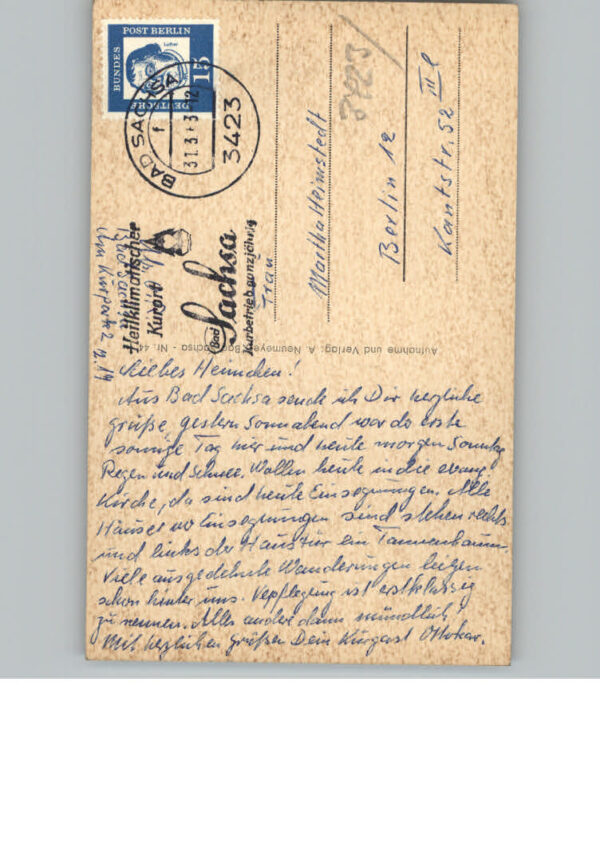 DEUTSCHE
BUNDES
POST BERLIN
Luther
15
BAD SACHSA
f
31.3
3423
3423
Heilklimatischer
Kurort
Bad
Sachsa
Kurbetrieb ganzjährig
Bad Sachsa
Frau
Martha Heimstedt
Berlin 12
Kantstr. 52 III
Aufnahme und Verlag: A. Neumeyer, Bad Sachsa - Nr. 44
Liebes Hennchen!
Aus Bad Sachsa sende ich Dir herzliche
Grüße, gestern Sonnabend war der erste
sonnige Tag hier und heute morgen Sonntag
Regen und Schnee. Wollen heute in die evang.
Kirche, da sind heute Einsegnungen. Alle
Häuser wo Einsegnungen sind stehen rechts
und links der Haustür ein Tannenbaum
Viele ausgedehnte Wanderungen liegen
schon hinter uns. Verpflegung ist erstklassig
zu nennen. Alles andere dann mündlich!
Mit herzlichen Grüßen Dein Kurgast Ottokar.